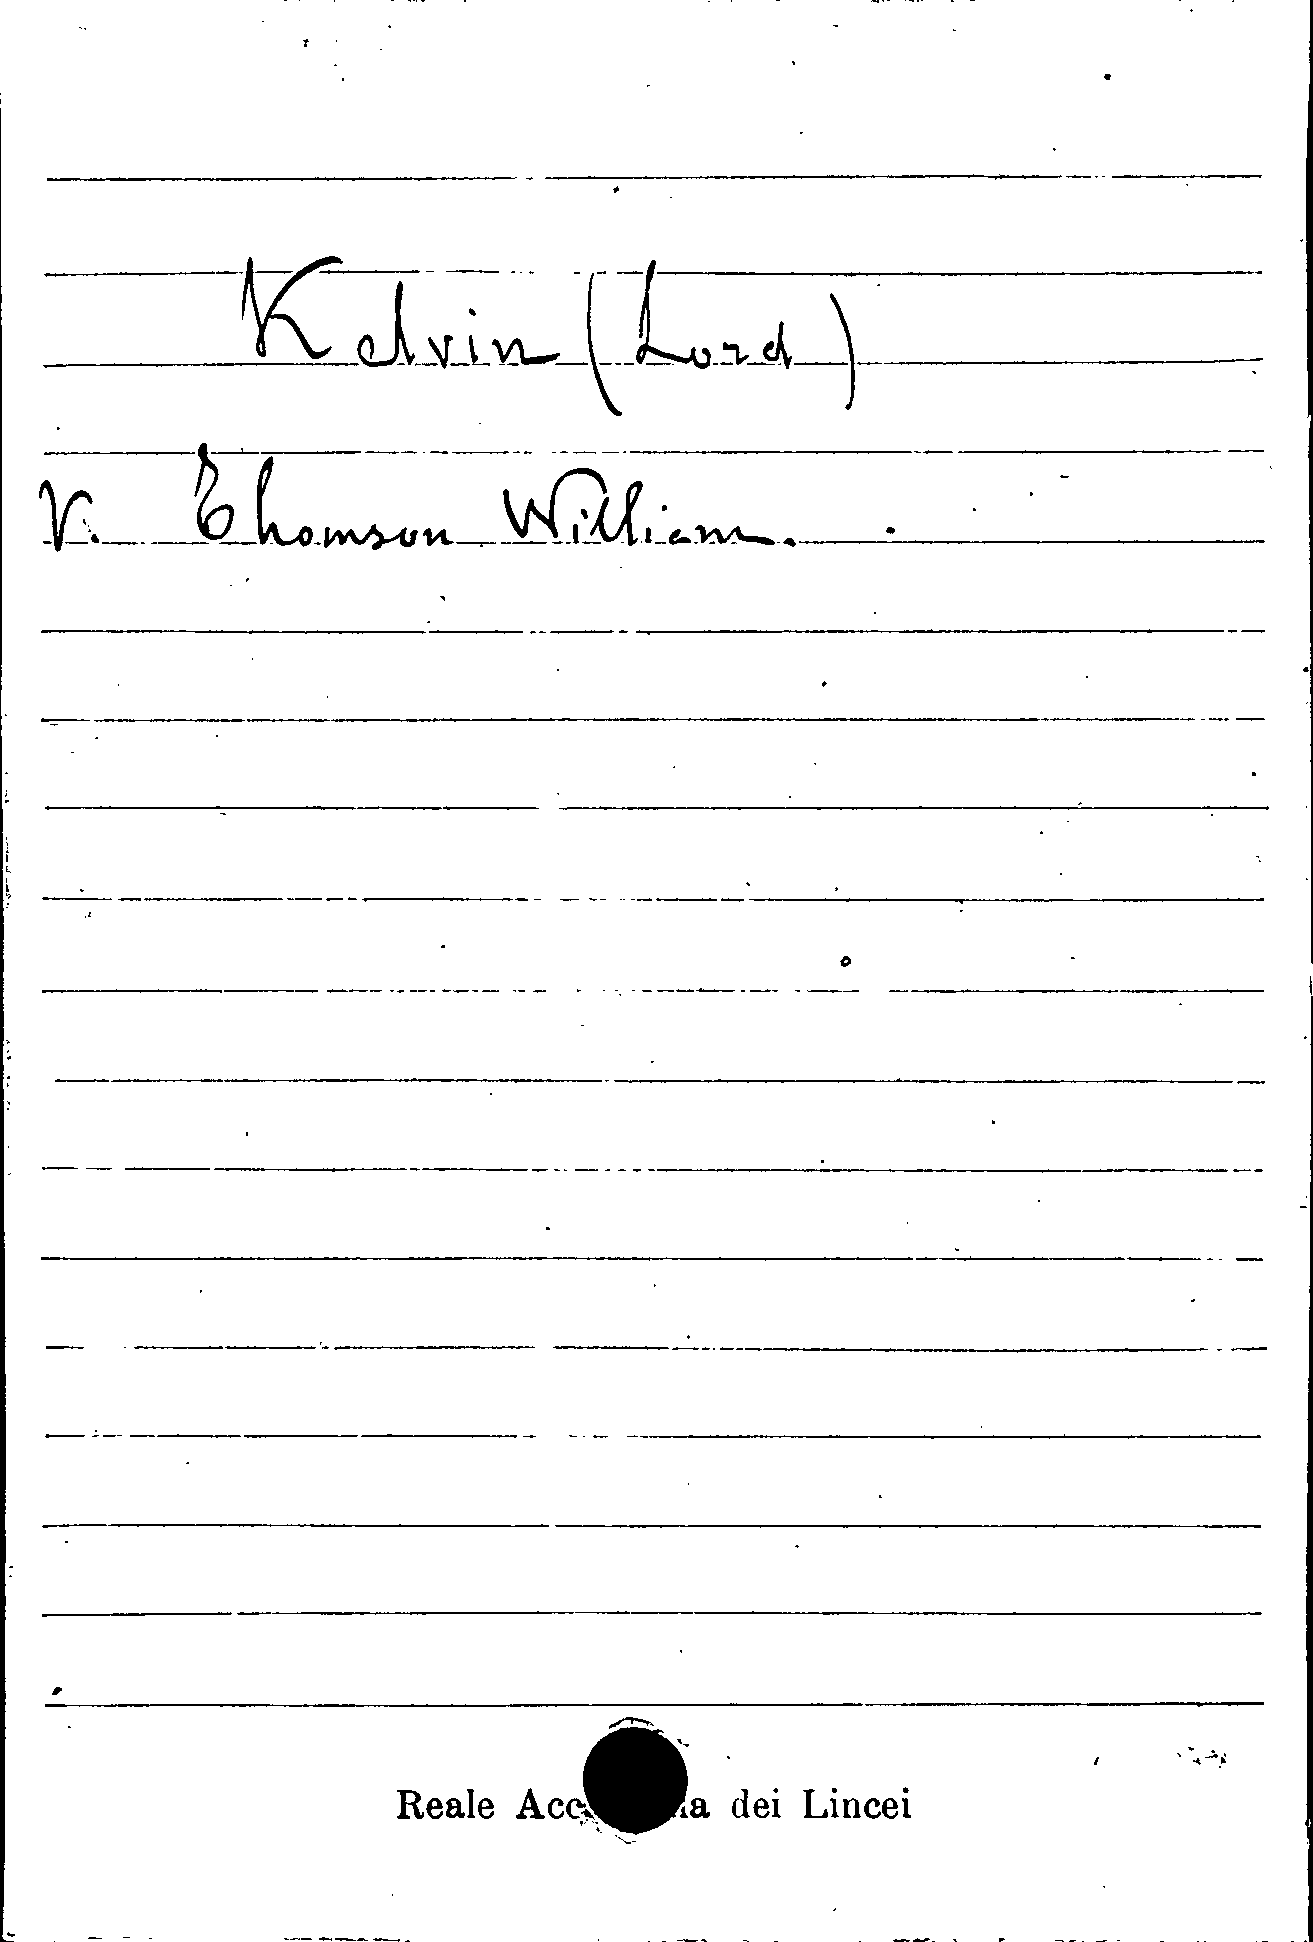 Kelvin (Lord)
V. Thomson William.
Reale dei Lincei